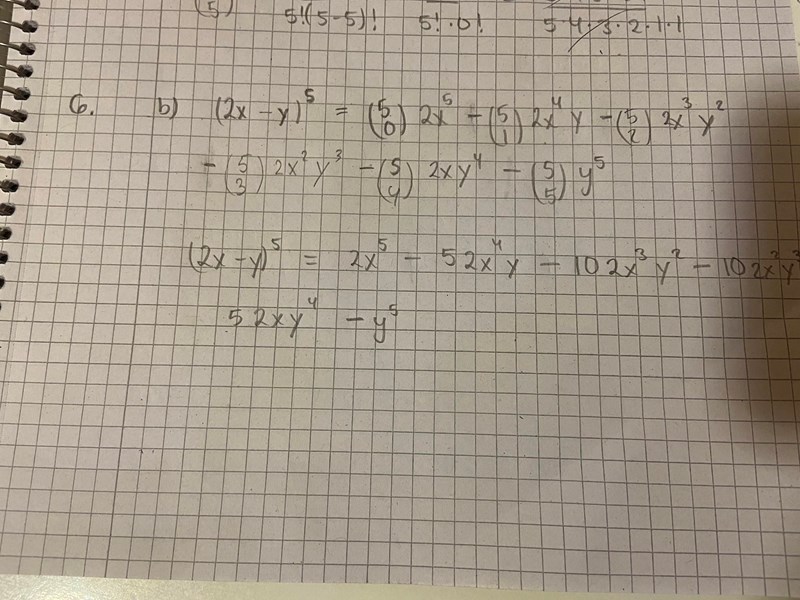 (5) 5!(5-5)! 5!·0! 5·4·3·2·1·1
6. b) (2x-y)⁵ = (5 0) 2x⁵ - (5 1) 2x⁴y - (5 2) 2x³y²
- (5 3) 2x²y³ - (5 4) 2xy⁴ - (5 5) y⁵
(2x-y)⁵ = 2x⁵ - 52x⁴y - 102x³y² - 102x²y³
52xy⁴ - y⁵